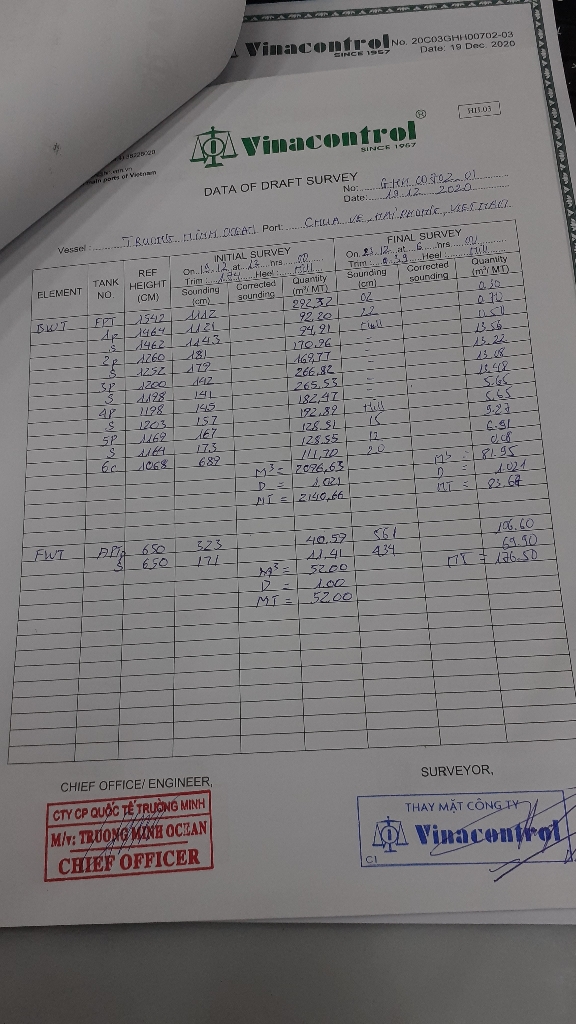 Vinacontrol
SINCE 1957
No. 20C03GHH00702-03
Date: 19 Dec. 2020
Vinacontrol ®
SINCE 1957
main ports of Vietnam
DATA OF DRAFT SURVEY
No: GHH 00702_01
Date: 19.12.2020
Vessel: TRUONG MINH OCEAN Port: CHUA VE, HAI PHONG, VIETNAM
ELEMENT TANK NO. REF HEIGHT (CM) INITIAL SURVEY FINAL SURVEY
On 19.12 at 13 hrs 00
Trim Heel Nill
On 21.12 at 6 hrs
Trim Heel Nill
Sounding (cm) Corrected sounding Quantity (m³/ MT) Sounding (cm) Corrected sounding Quantity (m³/ MT)
BWT FPT 1542 1112 292,32 02 0.30
1P 1464 1121 92,20 22 0.70
S 1462 1143 94,91 Nill 0.50
2P 1260 181 170,96 - 13.56
S 1252 179 169,77 - 13.22
3P 1200 142 266,82 - 13.08
S 1198 141 265,53 - 13.48
4P 1198 145 182,47 - 5.65
S 1203 157 192,89 Nill 5.65
5P 1169 167 128,51 15 9.27
S 1164 173 128,55 12 6.91
6C 1068 689 111,70 20 0.08
M³ = 2096,63 M³ = 81.95
D = 1.021 D = 1.021
MT = 2140,66 MT = 83.67
FWT APTP 650 323 40.59 561 106.60
S 650 171 11.41 434 69.90
M³ = 52.00 MT = 176.50
D = 1.00
MT = 52.00
CHIEF OFFICE/ ENGINEER,
SURVEYOR,
CTY CP QUỐC TẾ TRƯỜNG MINH
M/v: TRUONG MINH OCEAN
CHIEF OFFICER
THAY MẶT CÔNG TY
Vinacontrol
C1